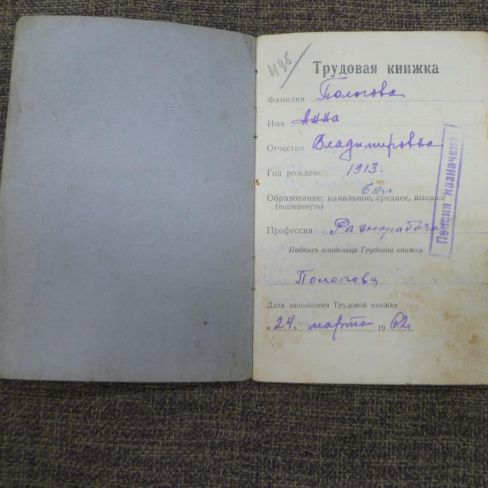 Трудовая книжка
Фамилия Пологова
Имя Анна
Отчество Владимировна
Год рожден: 1913.
6 кл
Образование: начальное, среднее, высшее
(подчеркнуть)
Профессия Разнорабочая
Подпись владельца Трудовой книжки
Пологова
Дата заполнения Трудовой книжки
24 марта 1962г.
Пенсия назначена